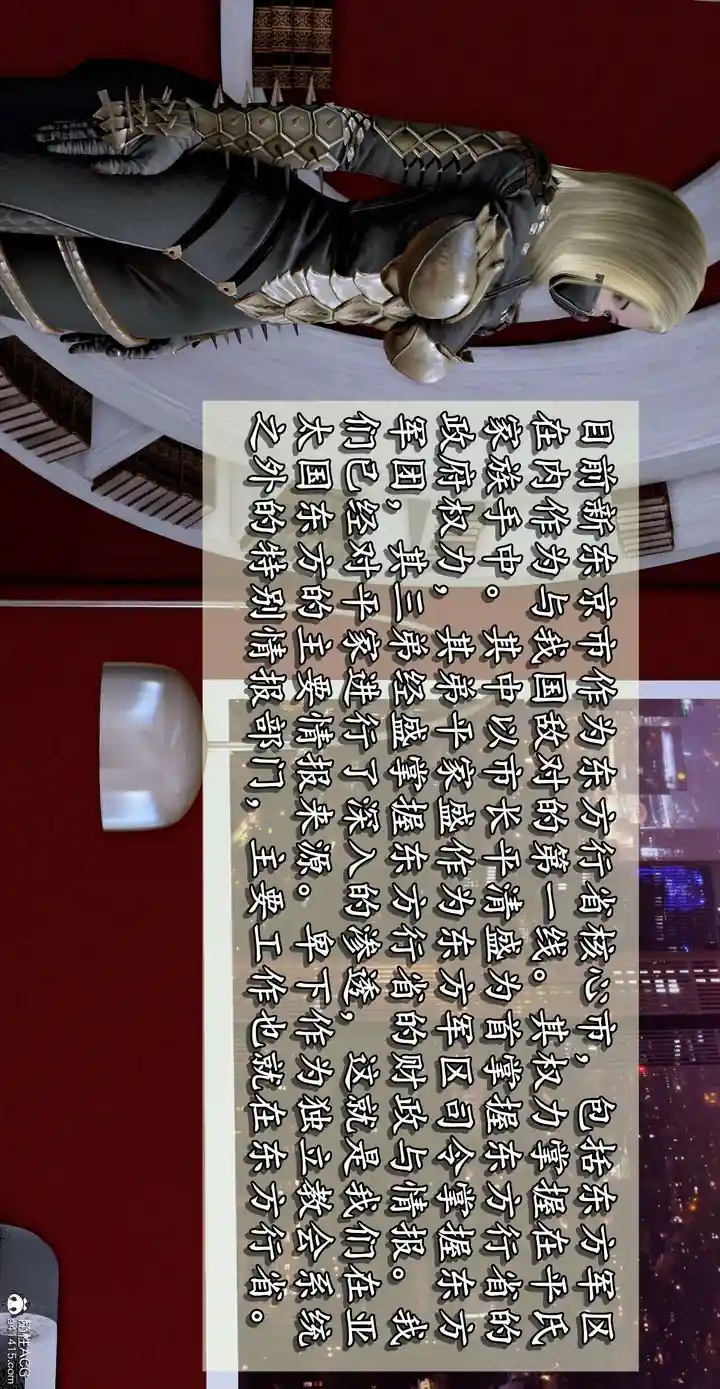 目前新东京市作为东方行省核心市，包括东方军区
在内作为与我国敌对的第一线。其权力掌握在平氏
家族手中。其中以市长平清盛为首掌握东方行省的
政府权力，其弟平家盛作为东方军区司令掌握东方
军团，其三弟经盛掌握东方行省的财政与情报。我
们已经对平家进行了深入的渗透，这就是我们在亚
太国东方的主要情报来源。卑下作为独立教会系统
之外的特别情报部门，主要工作也就在东方行省。